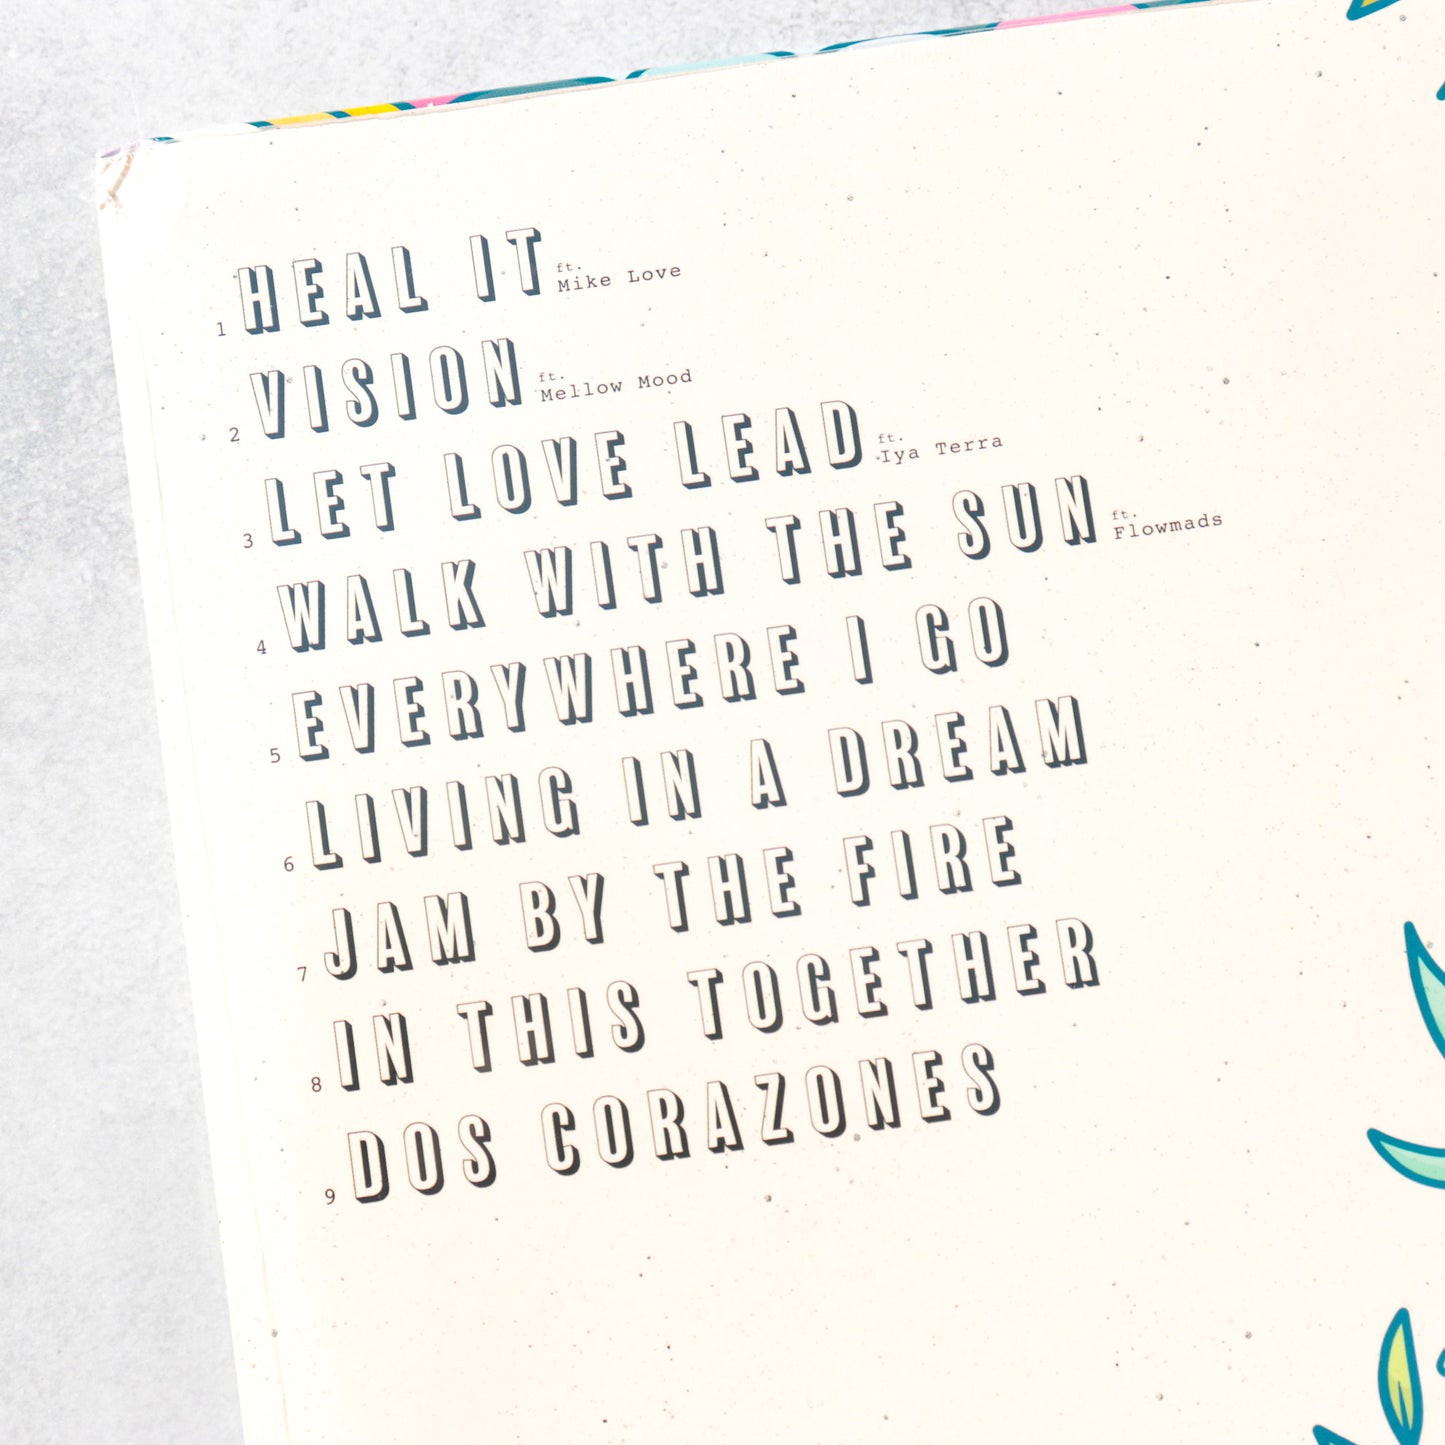 1 HEAL IT ft. Mike Love
2 VISION ft. Mellow Mood
3 LET LOVE LEAD ft. Iya Terra
4 WALK WITH THE SUN ft. Flowmads
5 EVERYWHERE I GO
6 LIVING IN A DREAM
7 JAM BY THE FIRE
8 IN THIS TOGETHER
9 DOS CORAZONES